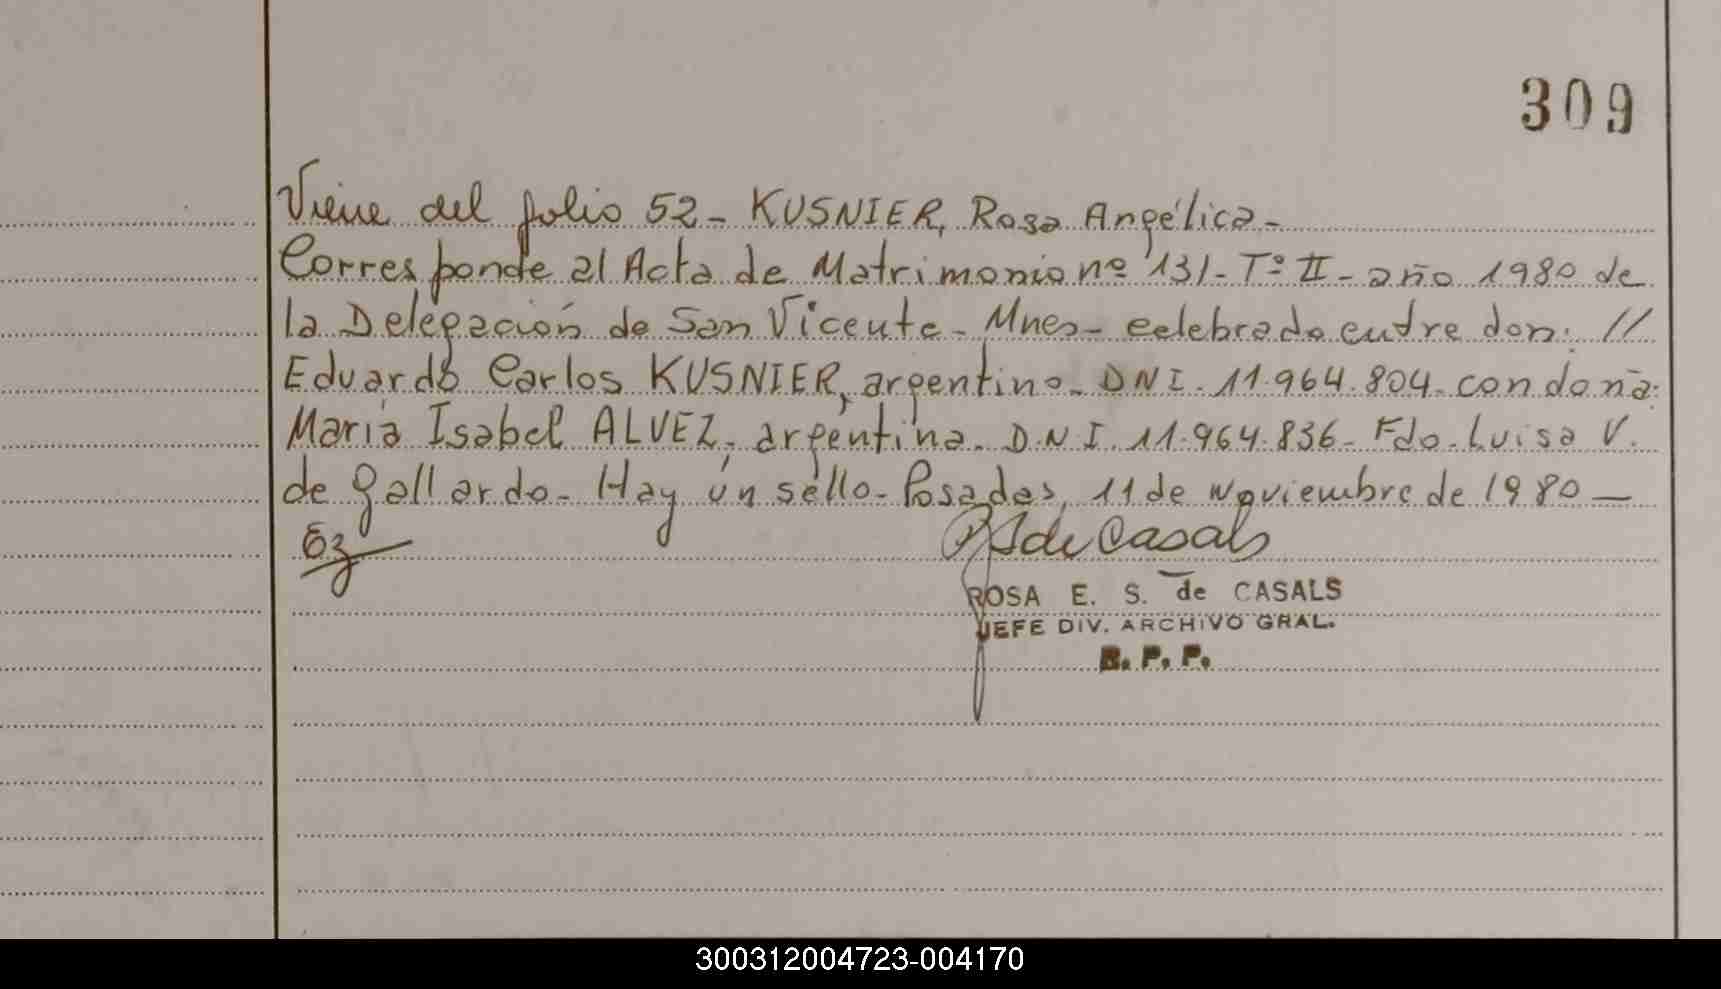 309
Viene del folio 52- KUSNIER, Rosa Angélica-
Corresponde al Acta de Matrimonio nº 131- Tº II- año 1980 de
la Delegación de San Vicente- Mnes- celebrado entre don: //
Eduardo Carlos KUSNIER, argentino- DNI. 11.964.804- con doña:
María Isabel ALVEZ, argentina. D.N.I. 11.964.836- Fdo. Luisa V.
de Gallardo- Hay un sello- Posadas, 11 de noviembre de 1980—
de Casals
ROSA E. S. de CASALS
JEFE DIV. ARCHIVO GRAL.
R. P. P.
300312004723-004170